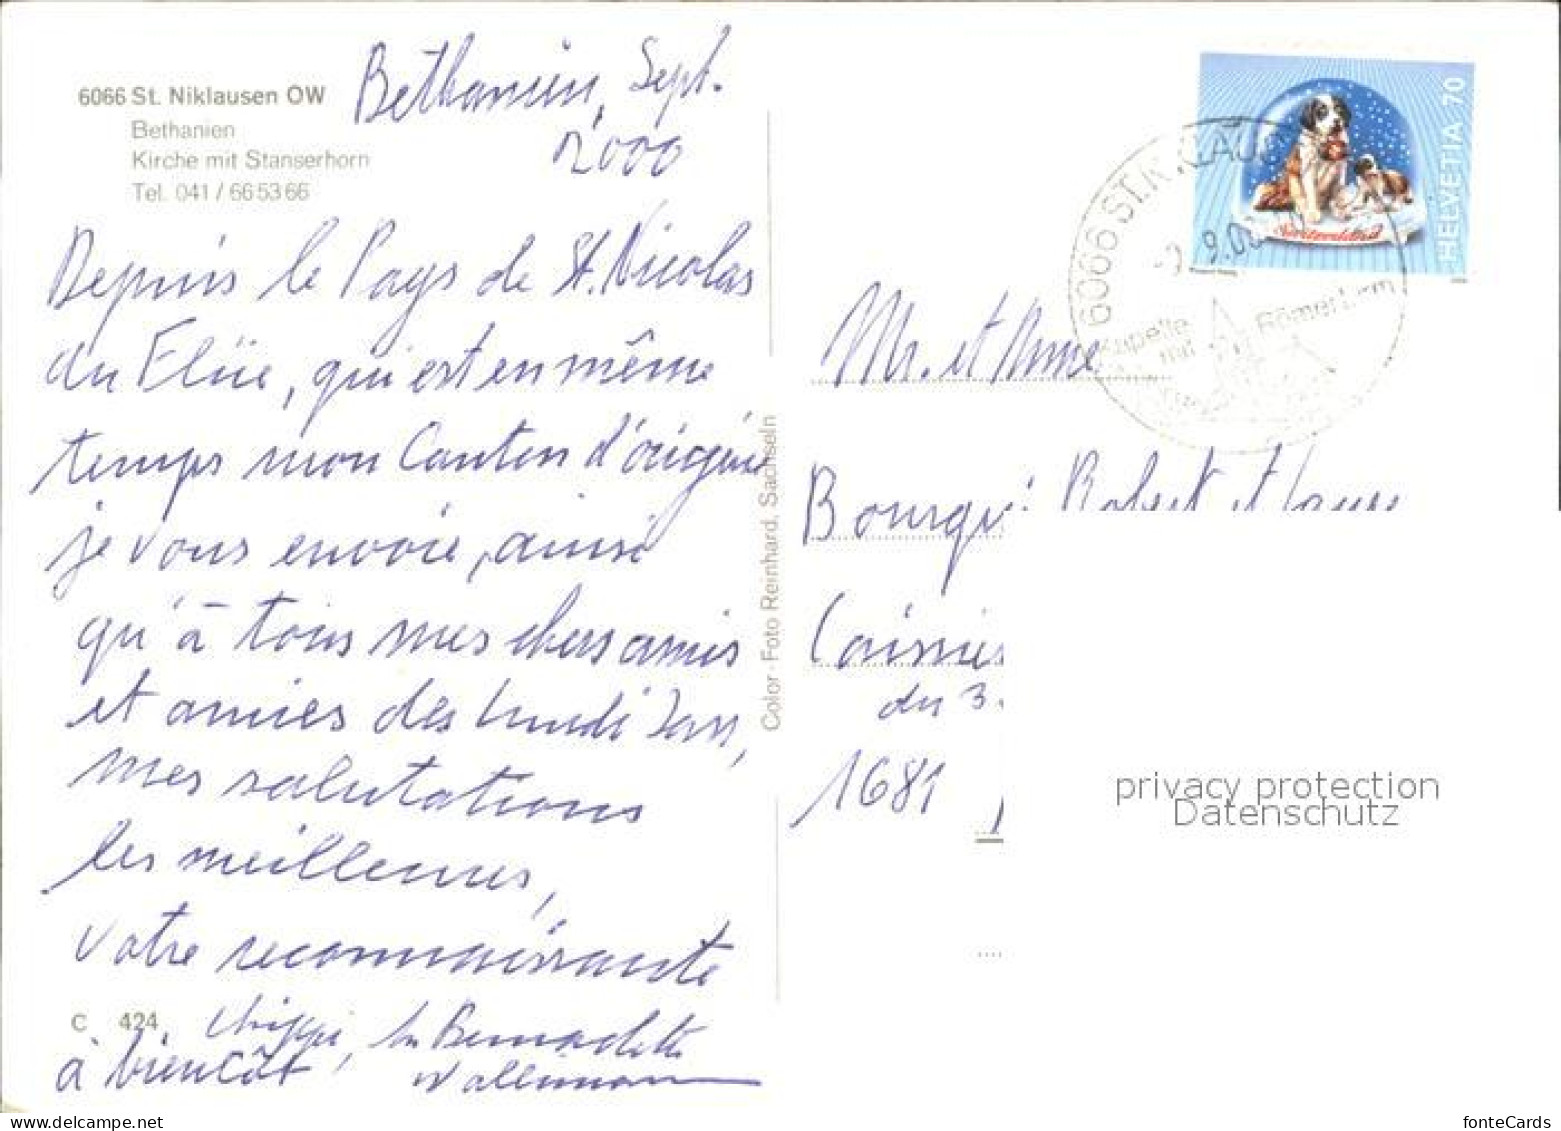 6066 St. Niklausen OW
Bethanien
Kirche mit Stanserhorn
Tel. 041 / 66 53 66
Bethanien, Sept.
2000
Depuis le Pays de St. Nicolas
du Flüe, qui est en même
temps mon Canton d'origine
je vous envoie, ainsi
qu'à tous mes chers amis
et amies des lundi
mes salutations
les meilleures,
votre reconnaissante
Sr Bernadette
à bientôt
C 424
Color - Foto Reinhard, Sachseln
HELVETIA 70
6066 ST. NIKLAUSEN
9.00
Kapelle
mit
Römerturm
Mr. et Mme
Bourqui Robert et
du 3.
1681
privacy protection
Datenschutz
fonteCards